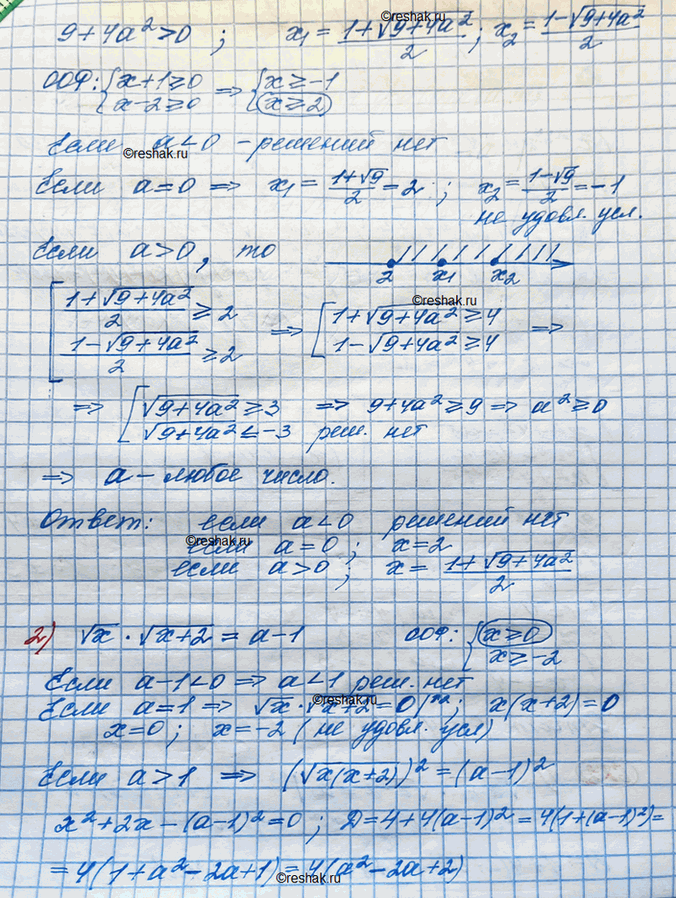 ©reshak.ru
9+4a²>0 ; x₁ = (1+√(9+4a²))/2 ; x₂ = (1-√(9+4a²))/2
ООФ: {x+1≥0 ⇒ {x≥-1
x-2≥0 x≥2
Если a<0 - решений нет
©reshak.ru
Если a=0 ⇒ x₁ = (1+√9)/2 = 2 ; x₂ = (1-√9)/2 = -1
не удовл. усл.
Если a>0, то
2 x₁ x₂
©reshak.ru
[(1+√(9+4a²))/2 ≥ 2 ⇒ [1+√(9+4a²) ≥ 4 ⇒
(1-√(9+4a²))/2 ≥ 2 1-√(9+4a²) ≥ 4
⇒ [√(9+4a²) ≥ 3 ⇒ 9+4a² ≥ 9 ⇒ a² ≥ 0
√(9+4a²) ≤ -3 реш. нет
⇒ a - любое число.
Ответ: если a<0 решений нет
©reshak.ru
если a=0 ; x=2
если a>0 ; x = (1+√(9+4a²))/2
2) √x · √(x+2) = a-1 ООФ: {x≥0
x≥-2
Если a-1<0 ⇒ a<1 реш. нет
©reshak.ru
Если a=1 ⇒ √x · √(x+2) = 0 |↑² ; x(x+2)=0
x=0 ; x=-2 (не удовл. усл)
Если a>1 ⇒ (√(x(x+2)))² = (a-1)²
x²+2x-(a-1)²=0 ; D=4+4(a-1)² = 4(1+(a-1)²)=
=4(1+a²-2a+1)=4(a²-2a+2)
©reshak.ru